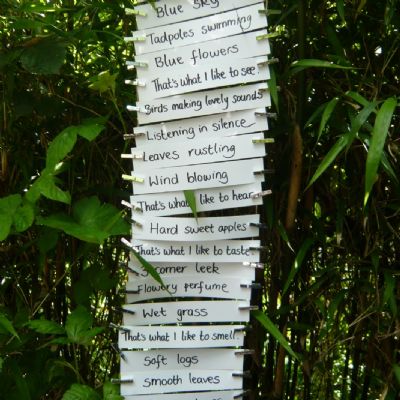 Blue sky
Tadpoles swimming
Blue flowers
That's what I like to see.
Birds making lovely sounds
Listening in silence
Leaves rustling
Wind blowing
That's what I like to hear.
Hard sweet apples
That's what I like to taste.
3 corner leek
Flowery perfume
Wet grass
That's what I like to smell.
Soft logs
Smooth leaves